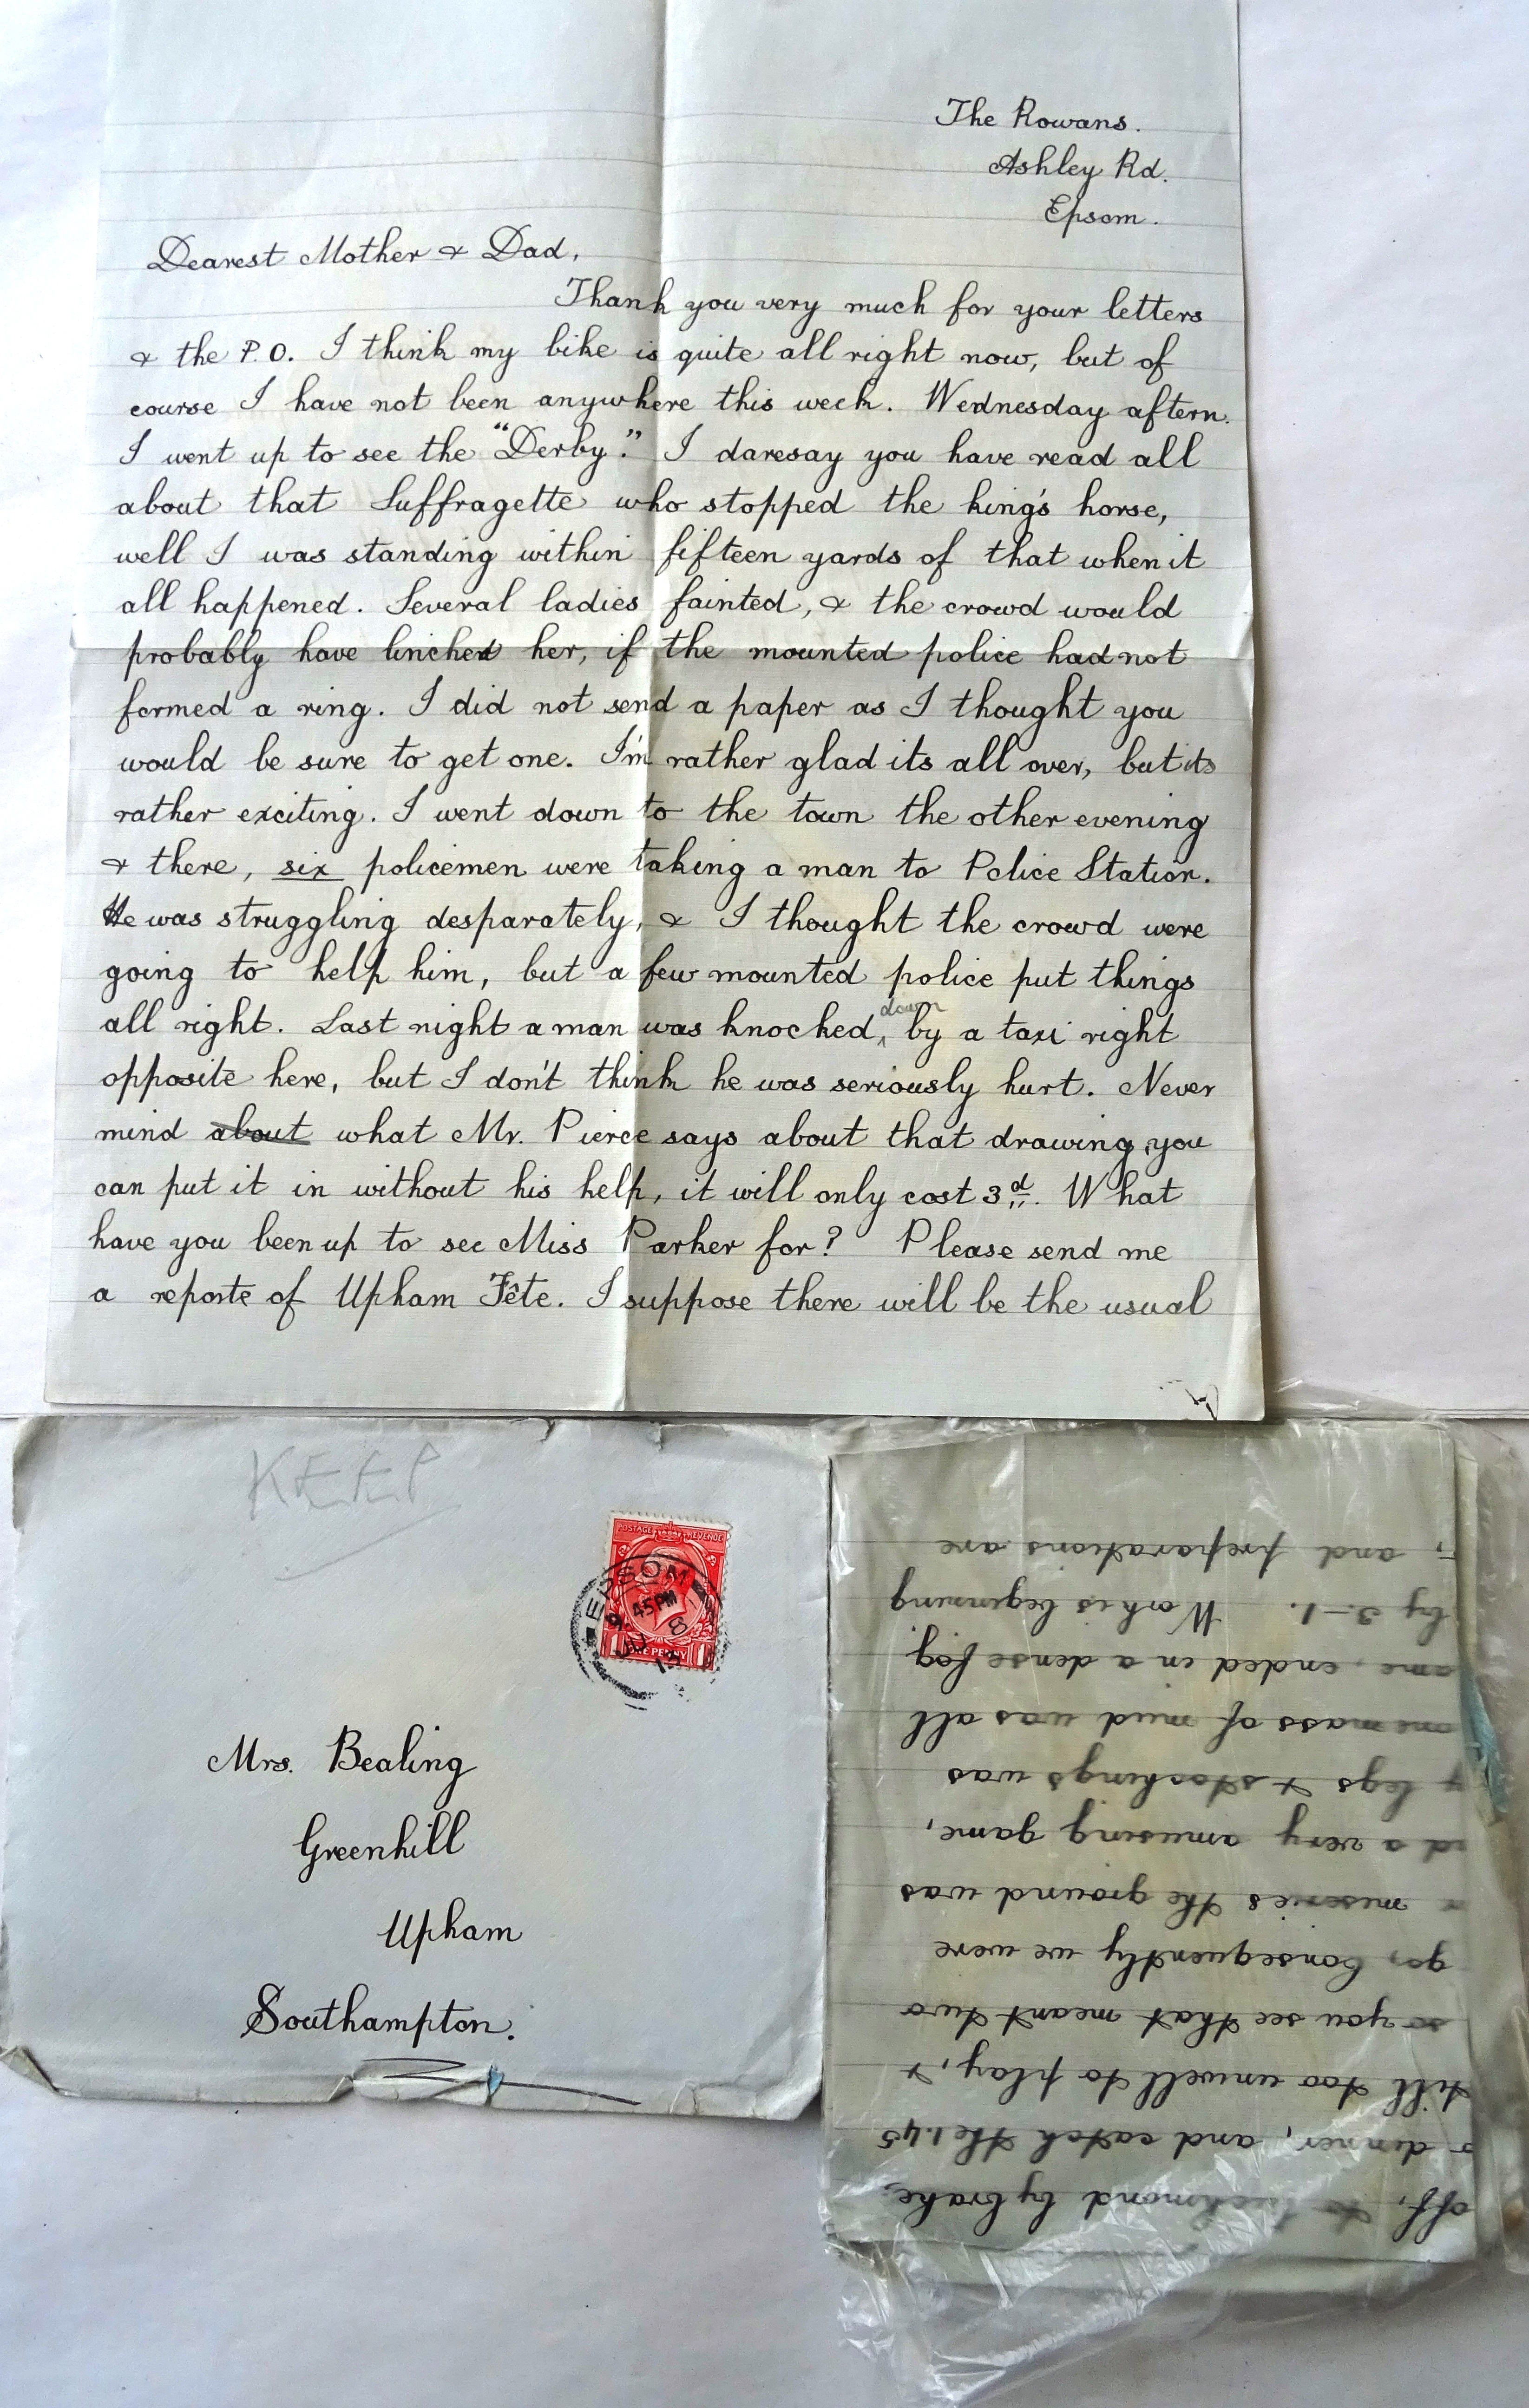 The Rowans.
Ashley Rd.
Epsom.
Dearest Mother & Dad,
Thank you very much for your letters
& the P.O. I think my bike is quite all right now, but of
course I have not been anywhere this week. Wednesday aftern.
I went up to see the "Derby". I daresay you have read all
about that Suffragette who stopped the king's horse,
well I was standing within fifteen yards of that when it
all happened. Several ladies fainted, & the crowd would
probably have linched her, if the mounted police had not
formed a ring. I did not send a paper as I thought you
would be sure to get one. I'm rather glad its all over, but its
rather exciting. I went down to the town the other evening
& there, six policemen were taking a man to Police Station.
He was struggling desparately, & I thought the crowd were
going to help him, but a few mounted police put things
all right. Last night a man was knocked down by a taxi right
opposite here, but I don't think he was seriously hurt. Never
mind about what Mr. Pierce says about that drawing, you
can put it in without his help, it will only cost 3d. What
have you been up to see Miss Parker for? Please send me
a reporte of Upham Fête. I suppose there will be the usual
KEEP
POSTAGE REVENUE
EPSOM
9.45PM
JU 8
13
ONE PENNY
Mrs. Bealing
Greenhill
Upham
Southampton.
off, to Richmond by brake,
dinner, and catch the 1.45
till too unwell to play, &
so you see that meant two
go, Consequently we were
miseries the ground was
a very amusing game,
legs & stockings was
one mass of mud was all
ame, ended in a dense fog
by 3-1. Work is beginning
, and preparations are